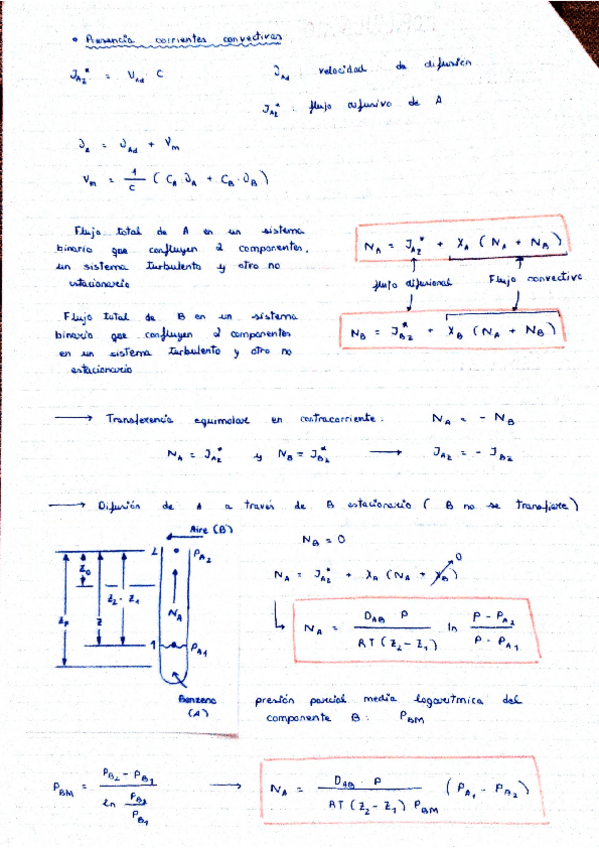 • Presencia corrientes convectivas
J_{Az}^* = V_{Ad} · C
J_{Ad} : velocidad de difusión
J_{Az}^* : flujo difusivo de A
V_m
V_m = 1/C ( C_A J_A + C_B · J_B )
Flujo total de A en un sistema
binario que confluyen 2 componentes,
un sistema turbulento y otro no
estacionario
N_A = J_{Az}^* + X_A ( N_A + N_B )
flujo difusional
Flujo convectivo
Flujo total de B en un sistema
binario que confluyen 2 componentes
en un sistema turbulento y otro no
estacionario
N_B = J_{Bz}^* + X_B ( N_A + N_B )
→ Transferencia equimolar en contracorriente: N_A = - N_B
N_A = J_{Az}^* y N_B = J_{Bz}^* → J_{Az} = - J_{Bz}
→ Difusión de A a través de B estacionario ( B no se transfiere )
Aire (B)
2
P_{A2}
Z_0
Z_2 - Z_1
Z_F
Z
N_A
1
P_{A1}
Benzeno
(A)
N_B = 0
N_A = J_{Az}^* + X_A ( N_A + N_B ) 0
N_A = D_{AB} · P / RT ( Z_2 - Z_1 ) ln P - P_{A2} / P - P_{A1}
presión parcial media logarítmica del
componente B: P_{BM}
P_{BM} = P_{B2} - P_{B1} / ln P_{B2} / P_{B1} → N_A = D_{AB} · P / RT ( Z_2 - Z_1 ) P_{BM} ( P_{A1} - P_{A2} )